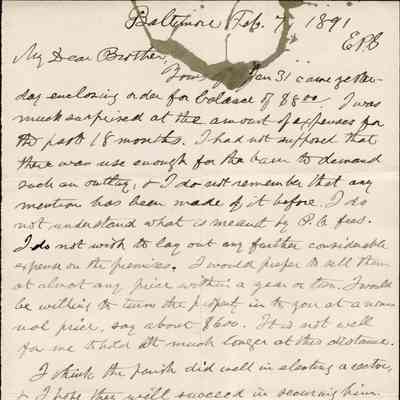 Baltimore Feb. 7, 1891
EPB
My Dear Brother,
Yours of Jan 31 came yester-
day enclosing order for balance of $8.00. I was
much surprised at the amount of expenses for
the past 18 months. I had not supposed that
there was use enough for the barn to demand
such an outlay, & I do not remember that any
mention has been made of it before. I do
not understand what is meant by P.O. fees.
I do not wish to lay out any further considerable
expense on the premises. I would prefer to sell them
at almost any price within a year or two. I would
be willing to turn the property in to you at a nom-
inal price, say about $600. It is not well
for me to hold it much longer at this distance.
I think the parish did well in electing a rector,
& I hope they will succeed in securing him.